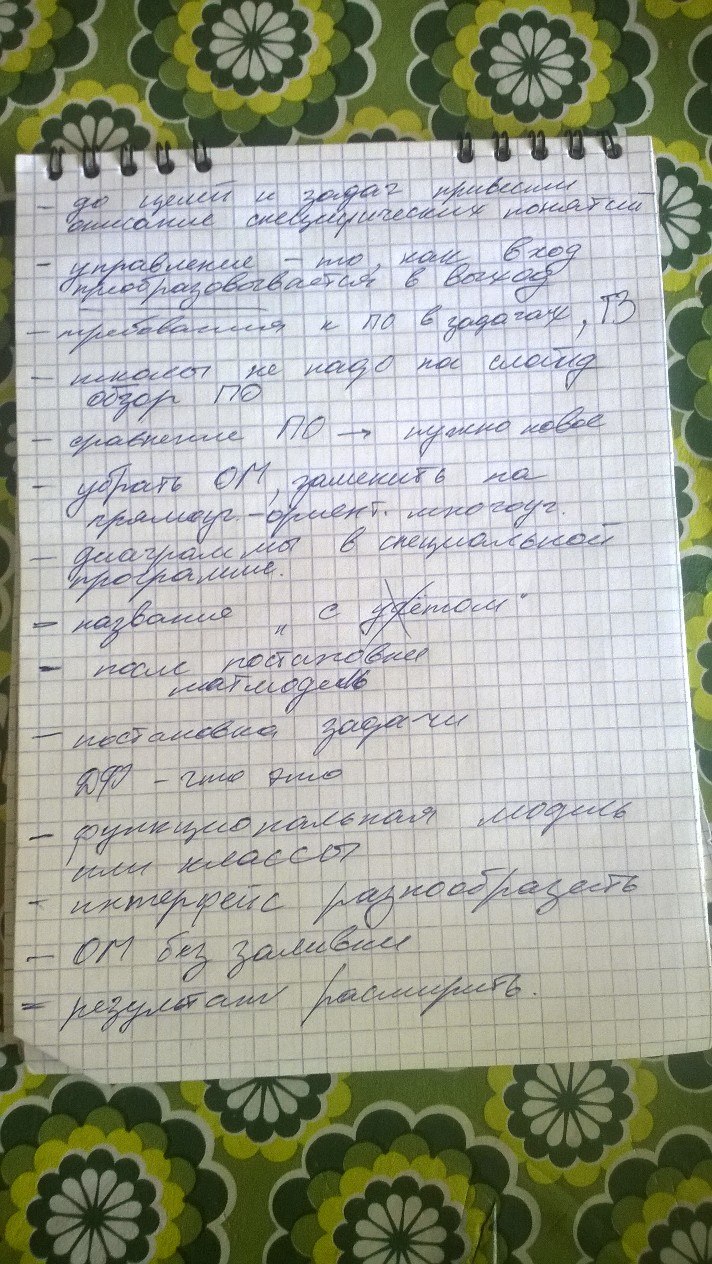 - до целей и задач привести
описание специфических понятий
- управление - то, как вход
приобразовывается в выход
- требования к ПО в задачах, ТЗ
- школы не надо на слайд
обзор ПО
- сравнение ПО → нужно новое
- убрать ОМ, заменить на
прямоуг.-ориент. многоуг.
- диаграммы в специальной
программе.
- название "с учётом"
- после постановки
матмодель
- постановка задачи
ДФ - что это
- функциональная модель
или классы
- интерфейс разнообразить
- ОМ без заливки
- результаты расширить.